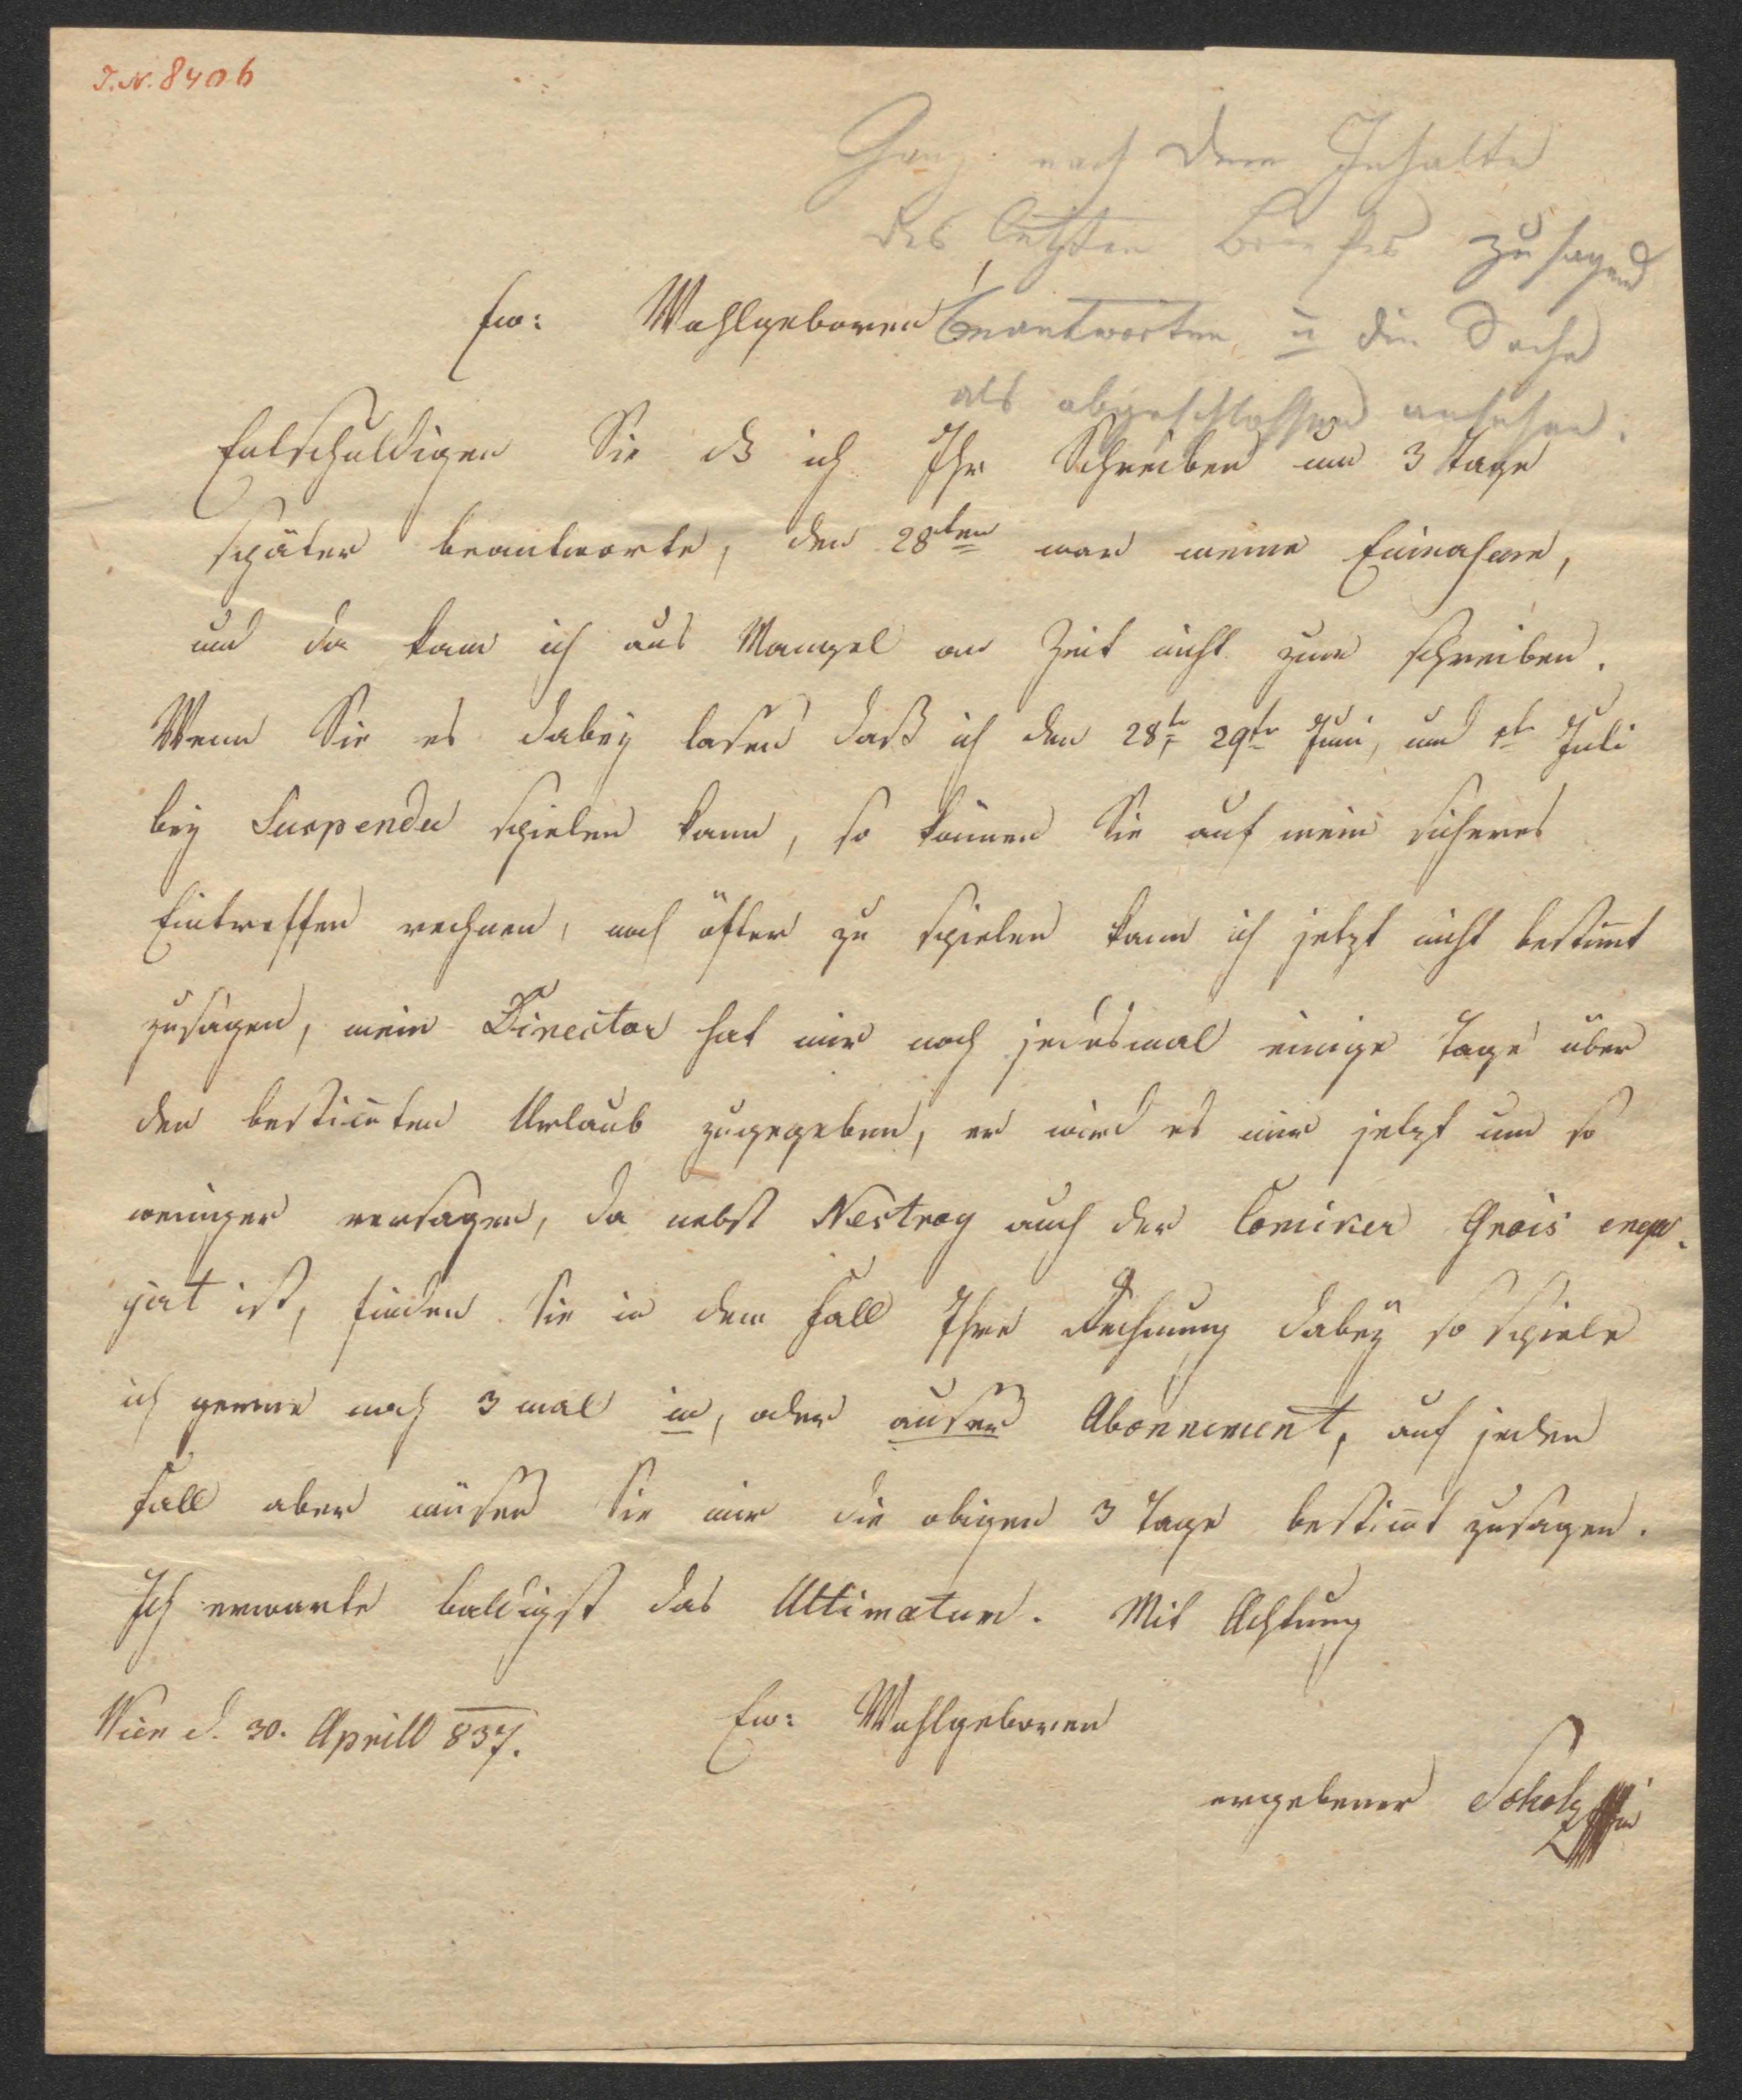 J. N. 8406
Ganz nach dem Inhalte
des letzten Briefes zusagend
beantworten u die Sache
als abgeschlossen ansehen.
Ew: Wohlgeboren!
Entschuldigen Sie dß ich Ihr Schreiben um 3 Tage
später beantworte, den 28ten war meine Einnahme,
und da kam ich aus Mangel an Zeit nicht zum schreiben.
Wenn Sie es dabey lasen daß ich den 28t 29te Juni, und 1te Juli
bey Suspendu spielen kann, so können Sie auf mein sicheres
Eintreffen rechnen, noch öfter zu spielen kann ich jetzt nicht bestim̄t
zusagen, mein Director hat mir noch jedesmal einige Tage über
den bestim̄ten Urlaub zugegeben, er wird es mir jetzt um so
weniger versagen, da nebst Nestroy auch der Comiker Grois enga-
girt ist, finden Sie in dem Fall Ihre Rechnung dabey so spiele
ich gerne noch 3 mal in, oder auser Abonnement, auf jeden
Fall aber müsen Sie mir die obigen 3 Tage bestim̄t zusagen.
Ich erwarte baldigst das Ultimatum. Mit Achtung
Ew: Wohlgeboren
Wien d. 30. Aprill 837.
ergebener Scholz